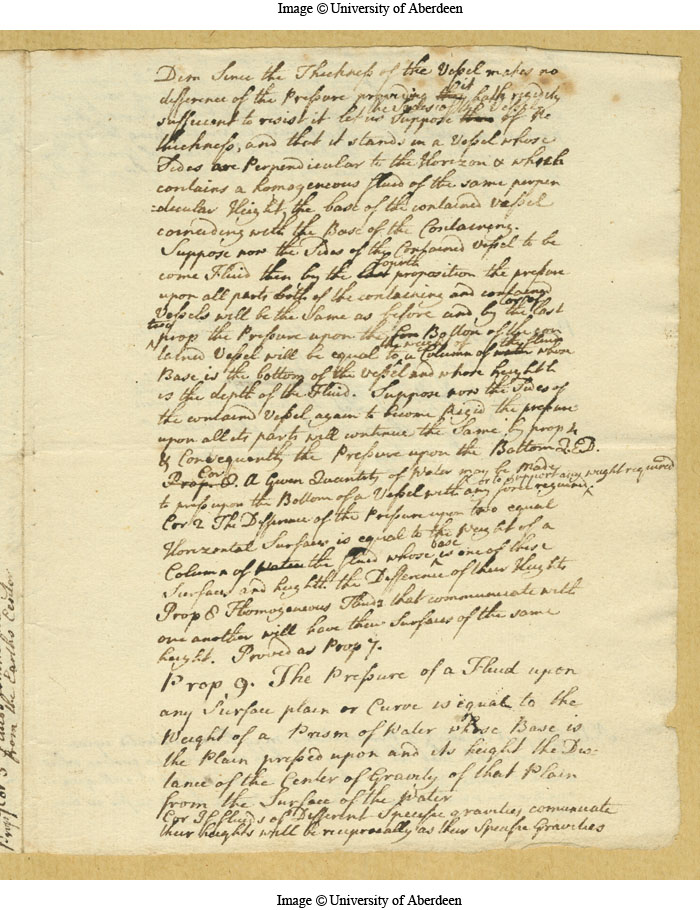 Image © University of Aberdeen
Dem Since the Thickness of the Vessel makes no
difference of the Pressure providing it hath rigidity
sufficient to resist it let us Suppose the Sides of the Vessel of no
thickness, and that it stands in a Vessel whose
Sides are Perpendicular to the Horizon & which
contains a homogeneous fluid of the same perpen
=dicular Height, the base of the contained vessel
coinciding with the Base of the Containing.
Suppose now the Sides of the Contained Vessel to be
come Fluid then by the fourth proposition the pressure
upon all parts both of the containing and contained
Vessels will be the Same as before and by the Cor of last
prop the Pressure upon the Bottom of the con
tained Vessel will be equal to the weight of a Column of the fluid whose
Base is the bottom of the vessel and whose height
is the depth of the Fluid. Suppose now the Sides of
the contained Vessel again to become Rigid the pressure
upon all its parts will continue the Same by prop 4
& Consequently the Pressure upon the Bottom Q.E.D.
Cor A Given Quantity of Water may be made
to press upon the Bottom of a Vessel with any force required or to support any weight required
Cor 2 The Difference of the Pressure upon two equal
Horizontal Surfaces is equal to the Weight of a
Column of the fluid whose base is one of these
Surfaces and heighth the Difference of their Heights
Prop 8 Homogeneous Fluids that communicate with
one another will have their Surfaces of the same
height. Proved as Prop 7.
Prop 9. The Pressure of a Fluid upon
any Surface plain or Curve is equal to the
Weight of a Prism of Water whose Base is
the Plain pressed upon and its height the Dis-
tance of the Center of Gravity of that Plain
from the Surface of the Water
Cor If fluids of Different Specific gravities comunicate
their heights will be reciprocally as their Specific Gravities
from the Earths Center
Image © University of Aberdeen